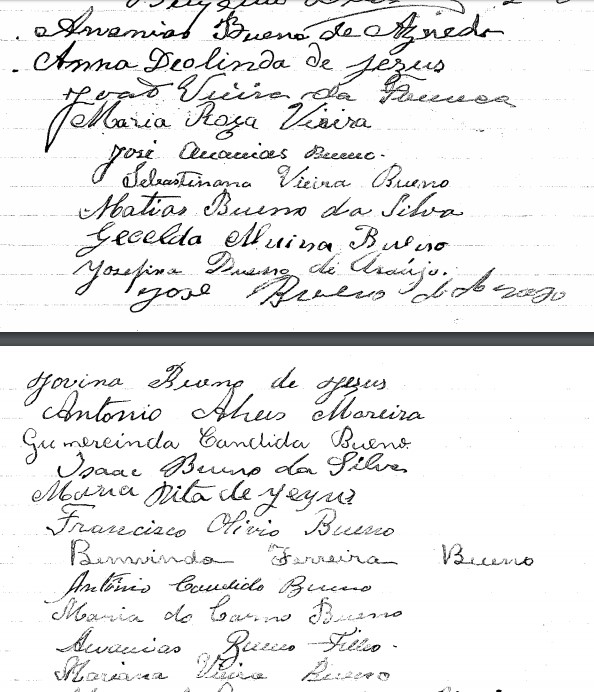 Ananias Bueno de Azevedo
Anna Deolinda de Jezus
João Vieira da Fonseca
Maria Roza Vieira
José Ananias Bueno.
Sebastinana Vieira Bueno
Matias Bueno da Silva
Gecelda Bueno
Josefina Bueno de Araújo.
José Bueno
Jovina Bueno de Jesus
Antonio Alves Moreira
Gumercinda Candida Bueno.
Isaac Bueno da Silva
Maria Rita de
Francisco Olivio Bueno
Benvinda Ferreira Bueno
Antônio Candido Bueno
Maria do Carmo Bueno
Ananias Bueno Filho.
Mariana Vieira Bueno